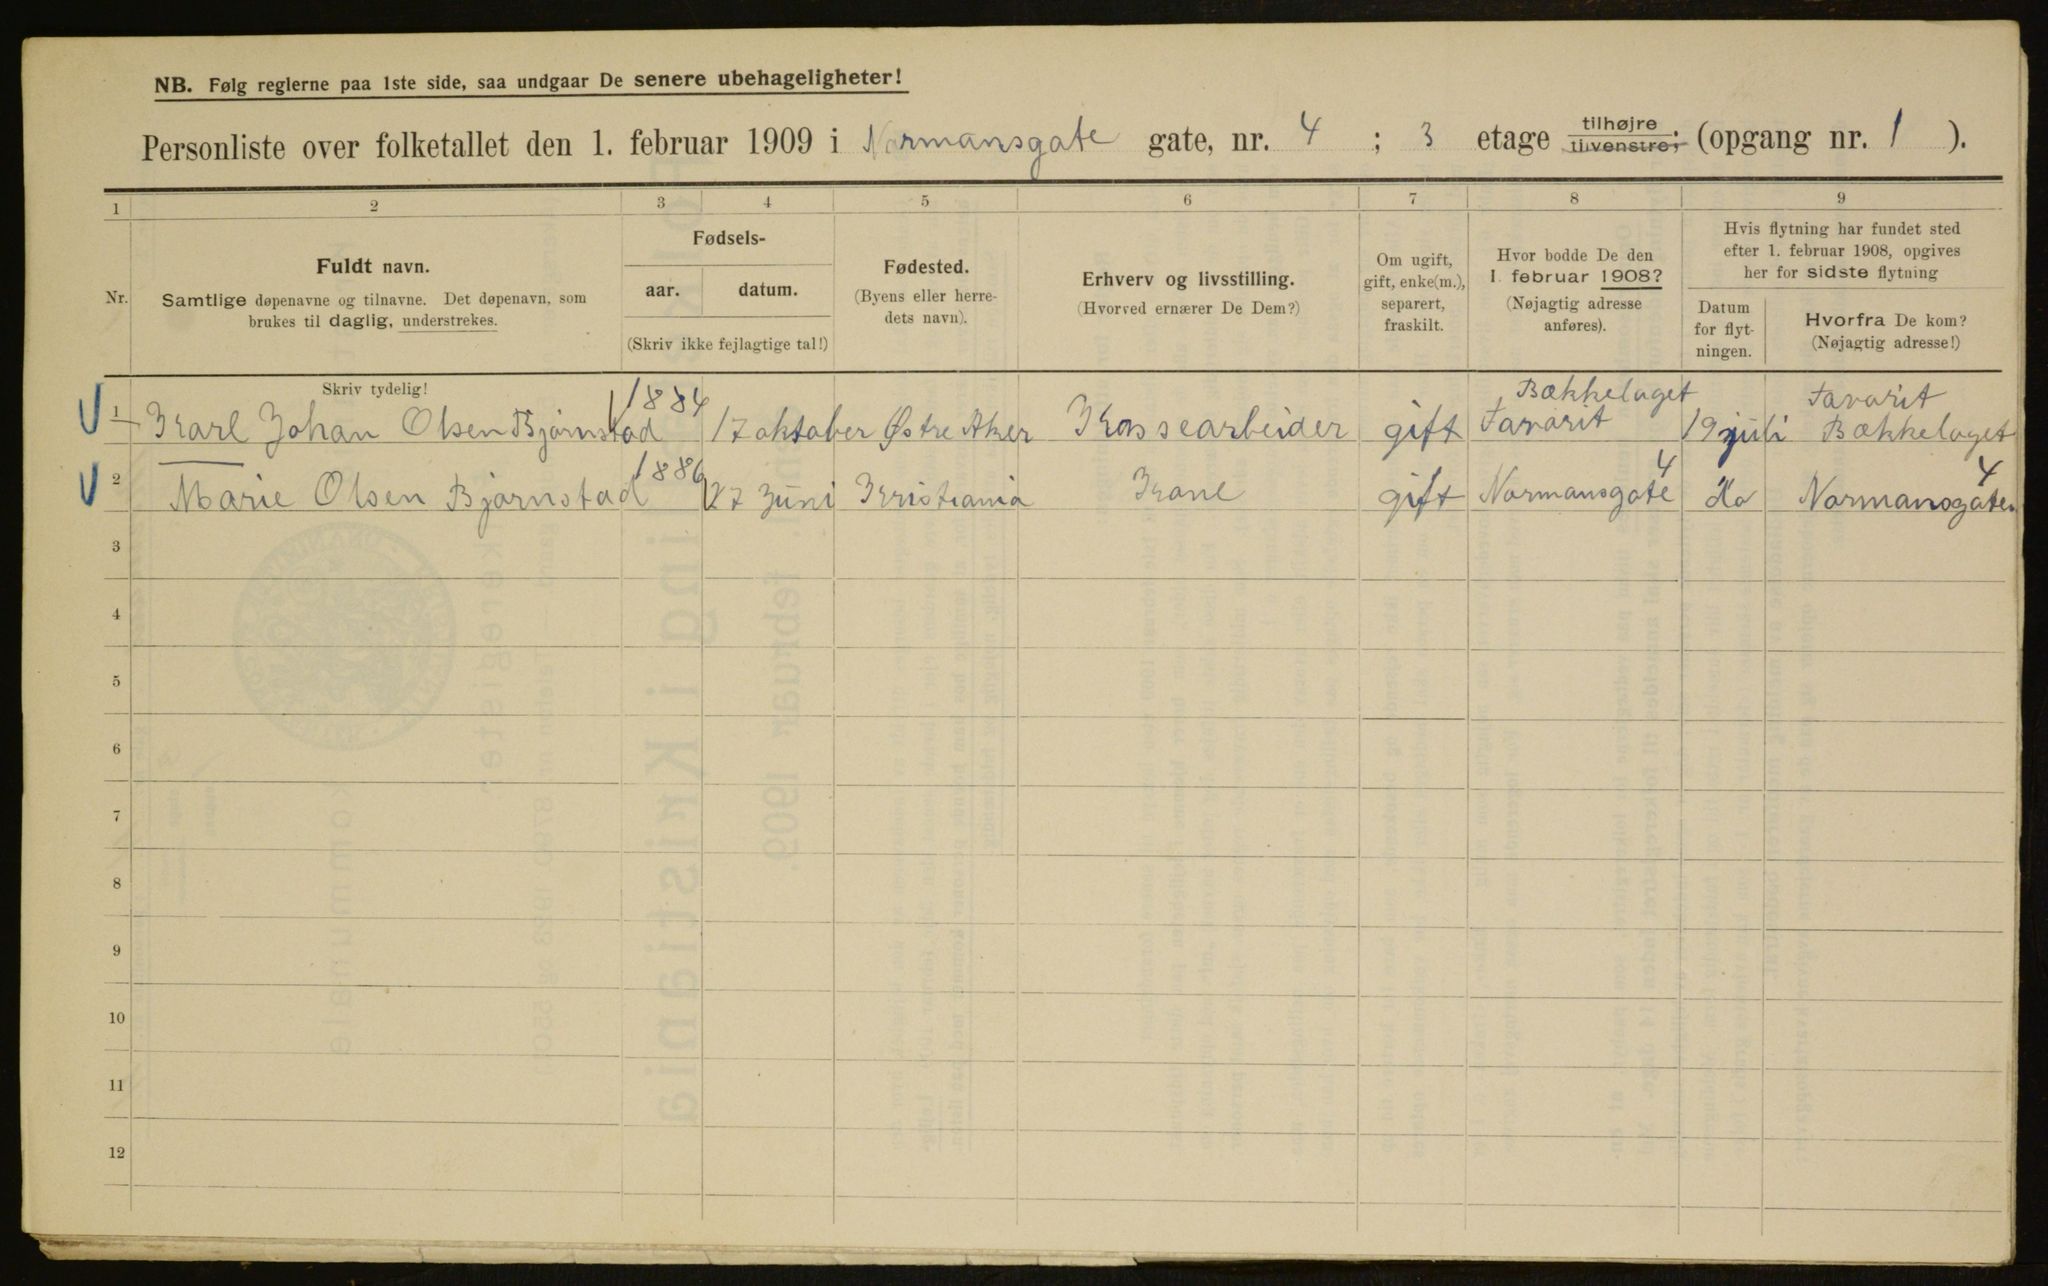 NB. Følg reglerne paa 1ste side, saa undgaar De senere ubehageligheter!
Personliste over folketallet den 1. februar 1909 i Normansgate gate, nr. 4 ; 3 etage tilhøjre tilvenstre; (opgang nr. 1 ).
1 2 3 4 5 6 7 8 9
Nr.
Fuldt navn.
Samtlige døpenavne og tilnavne. Det døpenavn, som
brukes til daglig, understrekes.
Skriv tydelig!
Fødsels-
aar. datum.
(Skriv ikke fejlagtige tal!)
Fødested.
(Byens eller herre-
dets navn).
Erhverv og livsstilling.
(Hvorved ernærer De Dem?)
Om ugift,
gift, enke(m.),
separert,
fraskilt.
Hvor bodde De den
1. februar 1908?
(Nøjagtig adresse
anføres).
Hvis flytning har fundet sted
efter 1. februar 1908, opgives
her for sidste flytning
Datum
for flyt-
ningen.
Hvorfra De kom?
(Nøjagtig adresse!)
1 Karl Johan Olsen Bjørnstad 1884 17 oktober Østre Aker Kassearbeider gift Bækkelaget Favorit 19 juli Favorit Bækkelaget
2 Marie Olsen Bjørnstad 1886 27 Juni Kristiania Kone gift Normansgate 4 do Normansgaten 4
3
4
5
6
7
8
9
10
11
12